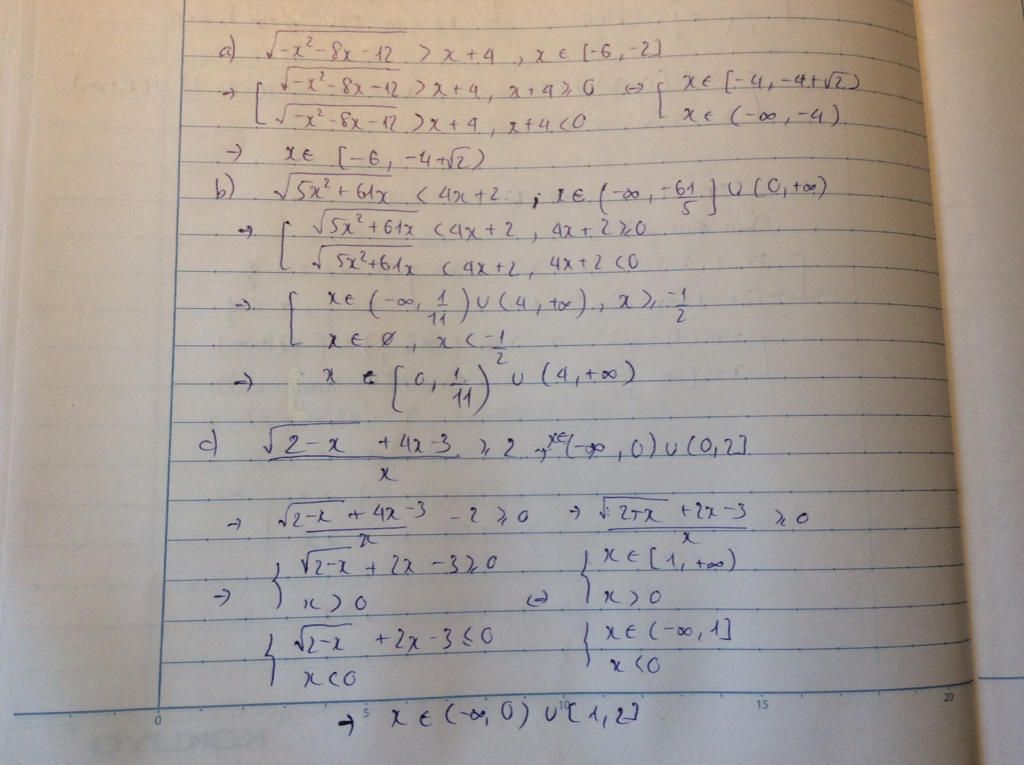 a) √(-x²-8x-12) > x+4 , x ∈ [-6, -2]
→ [ √(-x²-8x-12) > x+4, x+4 ≥ 0 ↔ [ x ∈ [-4, -4+√2)
√(-x²-8x-12) > x+4, x+4 < 0 x ∈ (-∞, -4)
→ x ∈ [-6, -4+√2)
b) √(5x²+61x) < 4x+2 ; x ∈ (-∞, -61/5] ∪ (0, +∞)
→ [ √(5x²+61x) < 4x+2 , 4x+2 ≥ 0
√(5x²+61x) < 4x+2, 4x+2 < 0
→ [ x ∈ (-∞, 1/11) ∪ (4, +∞) , x ≥ -1/2
x ∈ ∅ , x < -1/2
→ x ∈ [0, 1/11) ∪ (4, +∞)
c) (√(2-x) + 4x-3)/x ≥ 2 → x∈(-∞, 0) ∪ (0, 2]
→ (√(2-x) + 4x-3)/x - 2 ≥ 0 → (√(2-x) + 2x-3)/x ≥ 0
→ { √(2-x) + 2x - 3 ≥ 0 { x ∈ [1, +∞)
x > 0 ↔ x > 0
{ √(2-x) + 2x-3 ≤ 0 { x ∈ (-∞, 1]
x < 0 x < 0
0 5 10 15 20
→ x ∈ (-∞, 0) ∪ [1, 2]